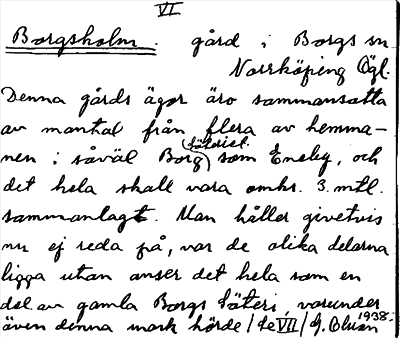 VI
Borgsholm. gård i Borgs sn
Norrköping Ögl.
Denna gårds ägor äro sammansatta
av mantal från flera av hemma-
nen i såväl Borg (säteriet) som Eneby, och
det hela skall vara omkr. 3. mtl.
sammanlagt. Man håller givetvis
nu ej reda på, var de olika delarna
ligga utan anser det hela som en
del av gamla Borgs säteri, varunder
även denna mark hörde / se VII / G. Olsson 1938.